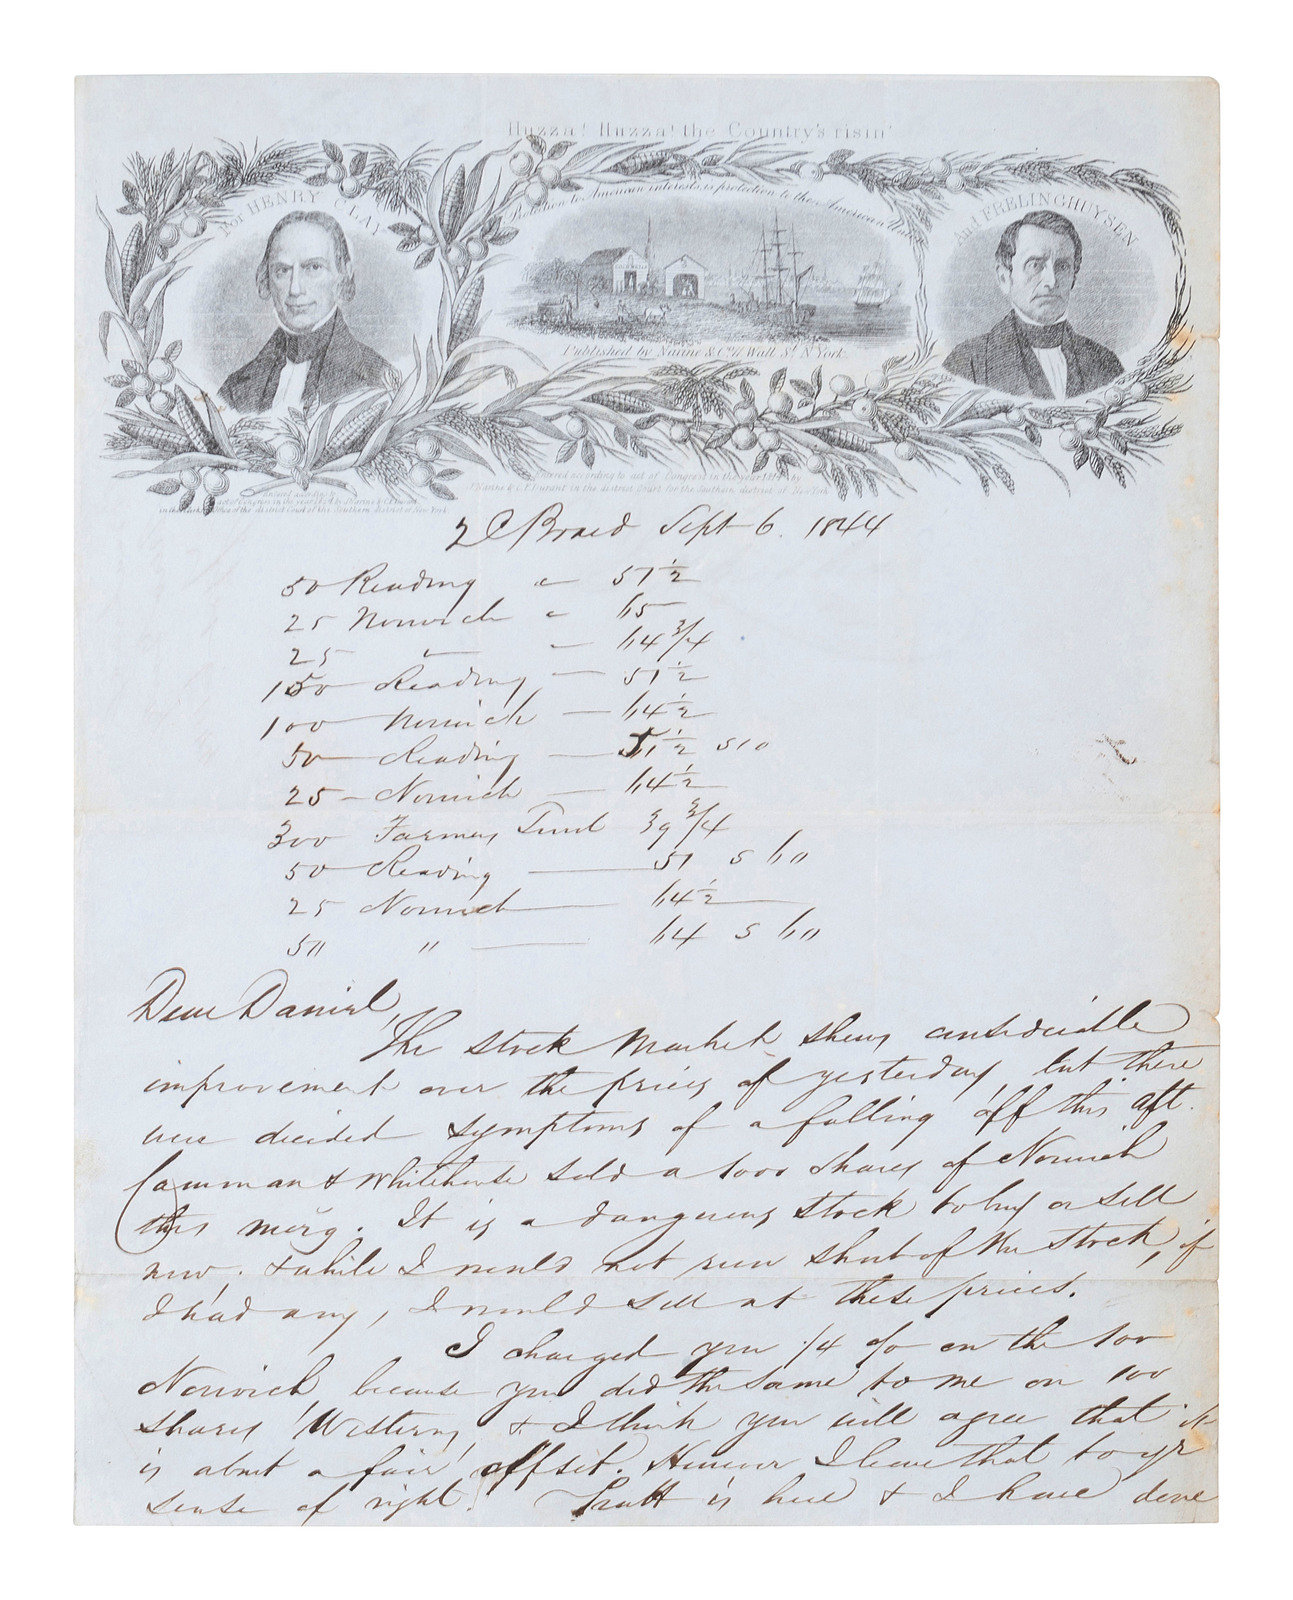 Huzza! Huzza! the Country's risin'
For HENRY CLAY
Relation to American interests is protection to the American
And FRELINGHUYSEN
Published by Narine & Co 11 Wall St. N. York
Entered according to act of Congress in the year 1844 by
J. Narine & C. F. Durant in the district Court for the Southern district of New York
of the district Court of the Southern district of New York
2 C Board Sept 6. 1844
50 Reading " 51 1/2
25 Norwich " 65
25 " - 64 3/4
150 Reading - 51 1/2
100 Norwich - 64 1/2
50 Reading - 51 1/2 s10
25 - Norwich - 64 1/2
300 Farmers 39 3/4
50 Reading - 51 s 60
25 Norwich - 64 1/2
50 " - 64 s 60
Dear Daniel,
The stock market shews considerable
improvement over the prices of yesterday, but there
were decided symptoms of a falling off this aft.
Camman & Whitehouse sold a 1000 shares of Norwich
this morg. It is a dangerous stock to buy or sell
now, & while I would not run short of the stock, if
I had any, I would sell at these prices.
I charged you 1/4 % on the 100
Norwich because you did the same to me on 100
shares Western, & I think you will agree that it
is about a fair offset. However I leave that to yr
sense of right. Pratt is here & I have done